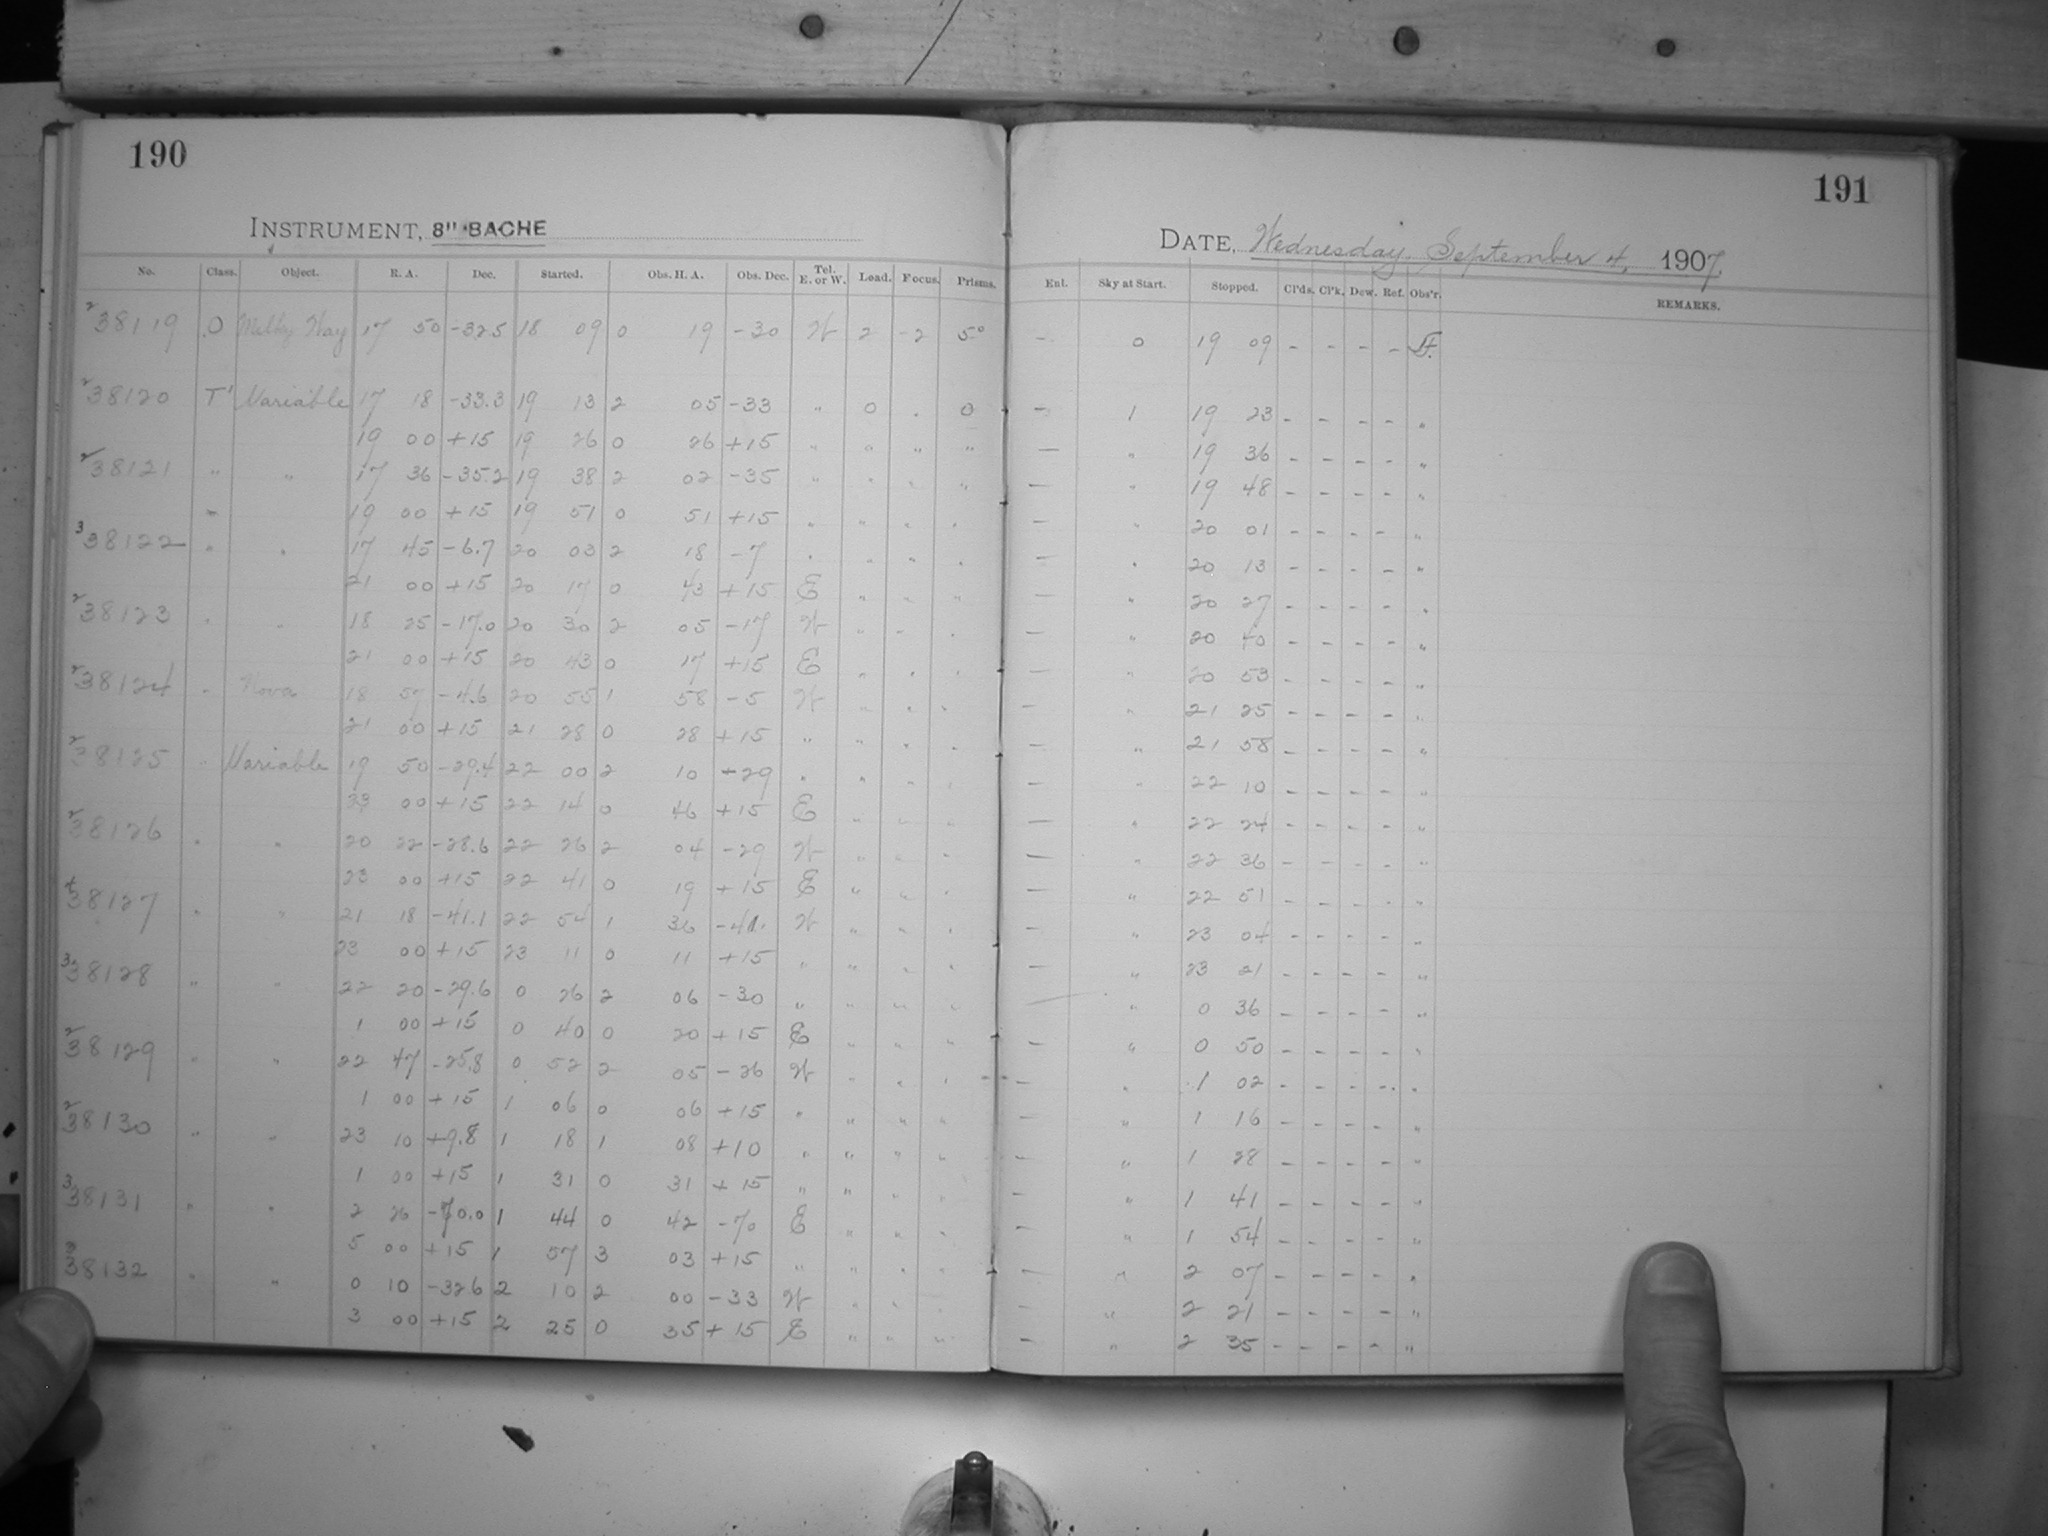 190
INSTRUMENT, 8" BACHE
No. Class. Object. R. A. Dec. Started. Obs. H. A. Obs. Dec. Tel. E. or W. Load. Focus. Prisms.
38119 O Milky Way 17 50 -32.5 18 09 0 19 -30 W 2 -2 5°
38120 T' Variable 17 18 -33.3 19 13 2 05 -33 " 0 . 0
19 00 +15 19 26 0 26 +15 " " " "
38121 " " 17 36 -35.2 19 38 2 02 -35 " " " "
19 00 +15 19 51 0 51 +15 " " " "
38122 " " 17 45 -6.7 20 03 2 18 -7 " " " "
21 00 +15 20 17 0 43 +15 E " " "
38123 " " 18 25 -17.0 20 30 2 05 -17 W " " "
21 00 +15 20 43 0 17 +15 E " " "
38124 " Nova 18 57 -4.6 20 55 1 58 -5 W " " "
21 00 +15 21 28 0 28 +15 " " " "
38125 " Variable 19 50 -29.4 22 00 2 10 -29 " " " "
23 00 +15 22 14 0 46 +15 E " " "
38126 " " 20 22 -28.6 22 26 2 04 -29 W " " "
23 00 +15 22 41 0 19 +15 E " " "
38127 " " 21 18 -41.1 22 54 1 36 -41 W " " "
23 00 +15 23 11 0 11 +15 " " " "
38128 " " 22 20 -29.6 0 26 2 06 -30 " " " "
1 00 +15 0 40 0 20 +15 E " " "
38129 " " 22 47 -25.8 0 52 2 05 -26 W " " "
1 00 +15 1 06 0 06 +15 " " " "
38130 " " 23 10 +9.8 1 18 1 08 +10 " " " "
1 00 +15 1 31 0 31 +15 " " " "
38131 " " 2 26 -70.0 1 44 0 42 -70 E " " "
5 00 +15 1 57 3 03 +15 " " " "
38132 " " 0 10 -32.6 2 10 2 00 -33 W " " "
3 00 +15 2 25 0 35 +15 E " " "
191
DATE, Wednesday, September 4, 1907.
Enl. Sky at Start. Stopped. Cl'ds. Cl'k. Dew. Ref. Obs'r. REMARKS.
- 0 19 09 - - - -
- 1 19 23 - - - - "
- " 19 36 - - - - "
- " 19 48 - - - - "
- " 20 01 - - - - "
- " 20 13 - - - - "
- " 20 27 - - - - "
- " 20 40 - - - - "
- " 20 53 - - - - "
- " 21 25 - - - - "
- " 21 58 - - - - "
- " 22 10 - - - - "
- " 22 24 - - - - "
- " 22 36 - - - - "
- " 22 51 - - - - "
- " 23 04 - - - - "
- " 23 21 - - - - "
- " 0 36 - - - - "
- " 0 50 - - - - "
- " 1 02 - - - - "
- " 1 16 - - - - "
- " 1 28 - - - - "
- " 1 41 - - - - "
- " 1 54 - - - - "
- " 2 07 - - - - "
- " 2 21 - - - - "
- " 2 35 - - - - "